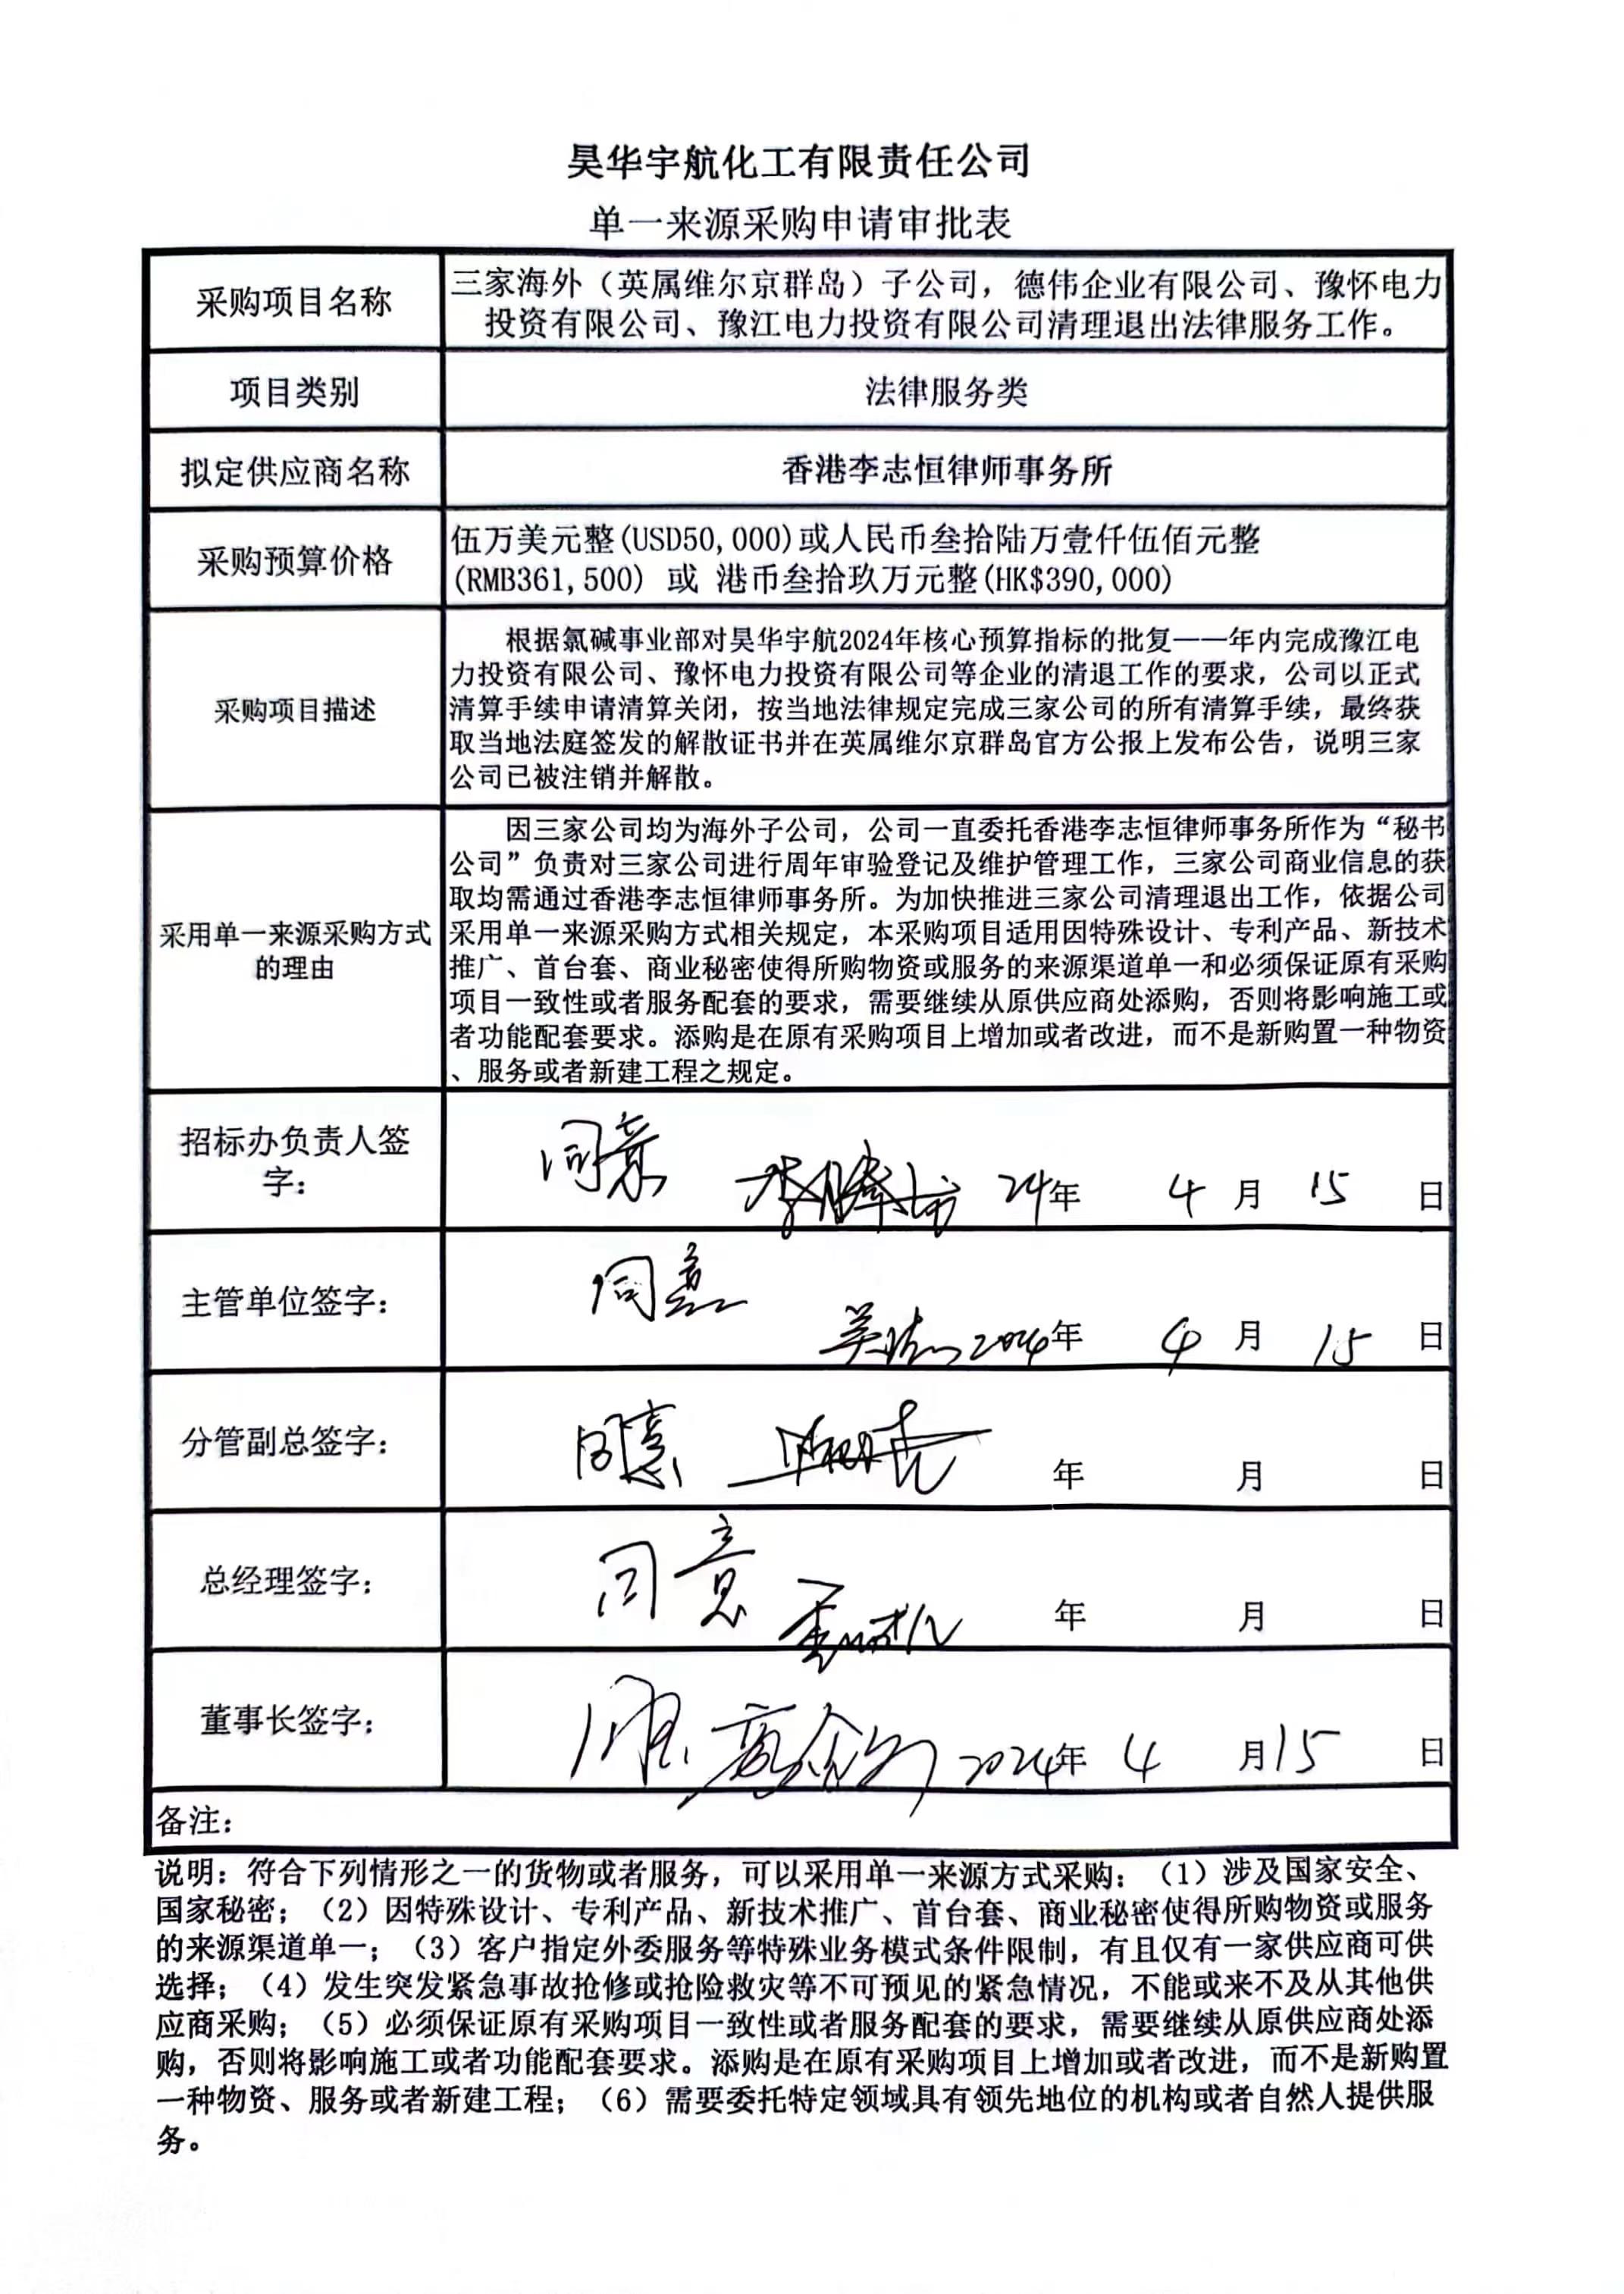 昊华宇航化工有限责任公司
单一来源采购申请审批表
采购项目名称
三家海外（英属维尔京群岛）子公司，德伟企业有限公司、豫怀电力
投资有限公司、豫江电力投资有限公司清理退出法律服务工作。
项目类别
法律服务类
拟定供应商名称
香港李志恒律师事务所
采购预算价格
伍万美元整(USD50,000)或人民币叁拾陆万壹仟伍佰元整
(RMB361,500) 或 港币叁拾玖万元整(HK$390,000)
采购项目描述
根据氯碱事业部对昊华宇航2024年核心预算指标的批复——年内完成豫江电
力投资有限公司、豫怀电力投资有限公司等企业的清退工作的要求，公司以正式
清算手续申请清算关闭，按当地法律规定完成三家公司的所有清算手续，最终获
取当地法庭签发的解散证书并在英属维尔京群岛官方公报上发布公告，说明三家
公司已被注销并解散。
采用单一来源采购方式
的理由
因三家公司均为海外子公司，公司一直委托香港李志恒律师事务所作为“秘书
公司”负责对三家公司进行周年审验登记及维护管理工作，三家公司商业信息的获
取均需通过香港李志恒律师事务所。为加快推进三家公司清理退出工作，依据公司
采用单一来源采购方式相关规定，本采购项目适用因特殊设计、专利产品、新技术
推广、首台套、商业秘密使得所购物资或服务的来源渠道单一和必须保证原有采购
项目一致性或者服务配套的要求，需要继续从原供应商处添购，否则将影响施工或
者功能配套要求。添购是在原有采购项目上增加或者改进，而不是新购置一种物资
、服务或者新建工程之规定。
招标办负责人签
字：
同意 24年 4月 15日
主管单位签字：
同意
2024年 4月 15日
分管副总签字：
同意 年 月 日
总经理签字：
同意
年 月 日
董事长签字：
同意 2024年 4月15日
备注：
说明：符合下列情形之一的货物或者服务，可以采用单一来源方式采购：（1）涉及国家安全、
国家秘密；（2）因特殊设计、专利产品、新技术推广、首台套、商业秘密使得所购物资或服务
的来源渠道单一；（3）客户指定外委服务等特殊业务模式条件限制，有且仅有一家供应商可供
选择；（4）发生突发紧急事故抢修或抢险救灾等不可预见的紧急情况，不能或来不及从其他供
应商采购；（5）必须保证原有采购项目一致性或者服务配套的要求，需要继续从原供应商处添
购，否则将影响施工或者功能配套要求。添购是在原有采购项目上增加或者改进，而不是新购置
一种物资、服务或者新建工程；（6）需要委托特定领域具有领先地位的机构或者自然人提供服
务。